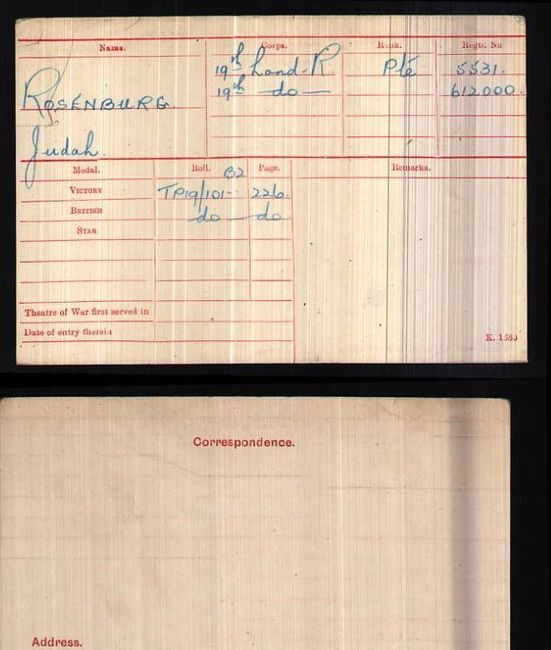 Name. Corps. Rank. Regtl. No
19th Lond. R Pte 5531.
19th do 612000.
ROSENBURG.
Judah.
Medal. Roll. B2 Page. Remarks.
VICTORY TP19/101 226.
BRITISH do do
STAR
Theatre of War first served in
Date of entry therein
K. 1380
Correspondence.
Address.